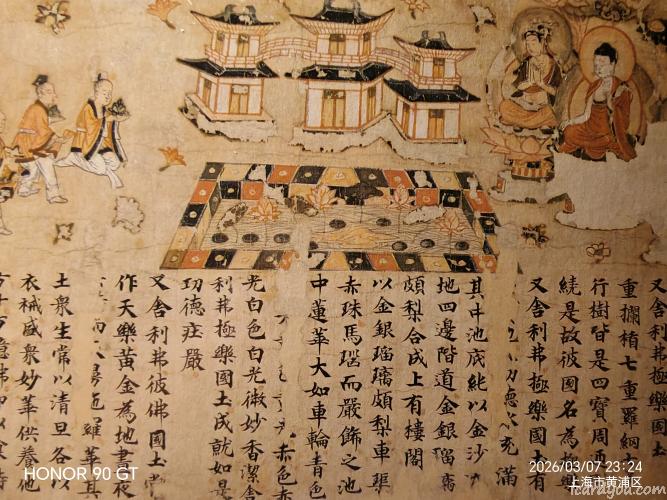 又舍利弗極樂國土
重攔楯七重羅網七
行樹皆是四寶周迊
繞是故彼國名為極
又舍利弗極樂國土有
功德 充滿
其中池底純以金沙
地四邊階道金銀瑠
頗梨合成上有樓閣
以金銀瑠璃頗梨車璖
赤珠馬瑙而嚴飾之池
中蓮華大如車輪青色
赤色赤
光白色白光微妙香潔舍
利弗極樂國土成就如是
功德庄嚴
又舍利弗彼佛國土
作天樂黃金為地晝夜
而雨曼陁羅華其
土衆生常以清旦各以
衣裓盛衆妙華供養他
方十万億佛即以食時
HONOR 90 GT
2026/03/07 23:24
上海市黄浦区
icarayou.com